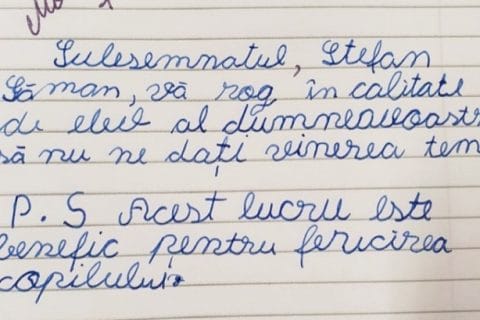 Sulesemnatul, Ștefan
Șăman, vă rog în calitate
de elev al dumneavoastr
să nu ne dați vinerea tem
P.S Acest lucru este
benefic pentru fericirea
copilului.